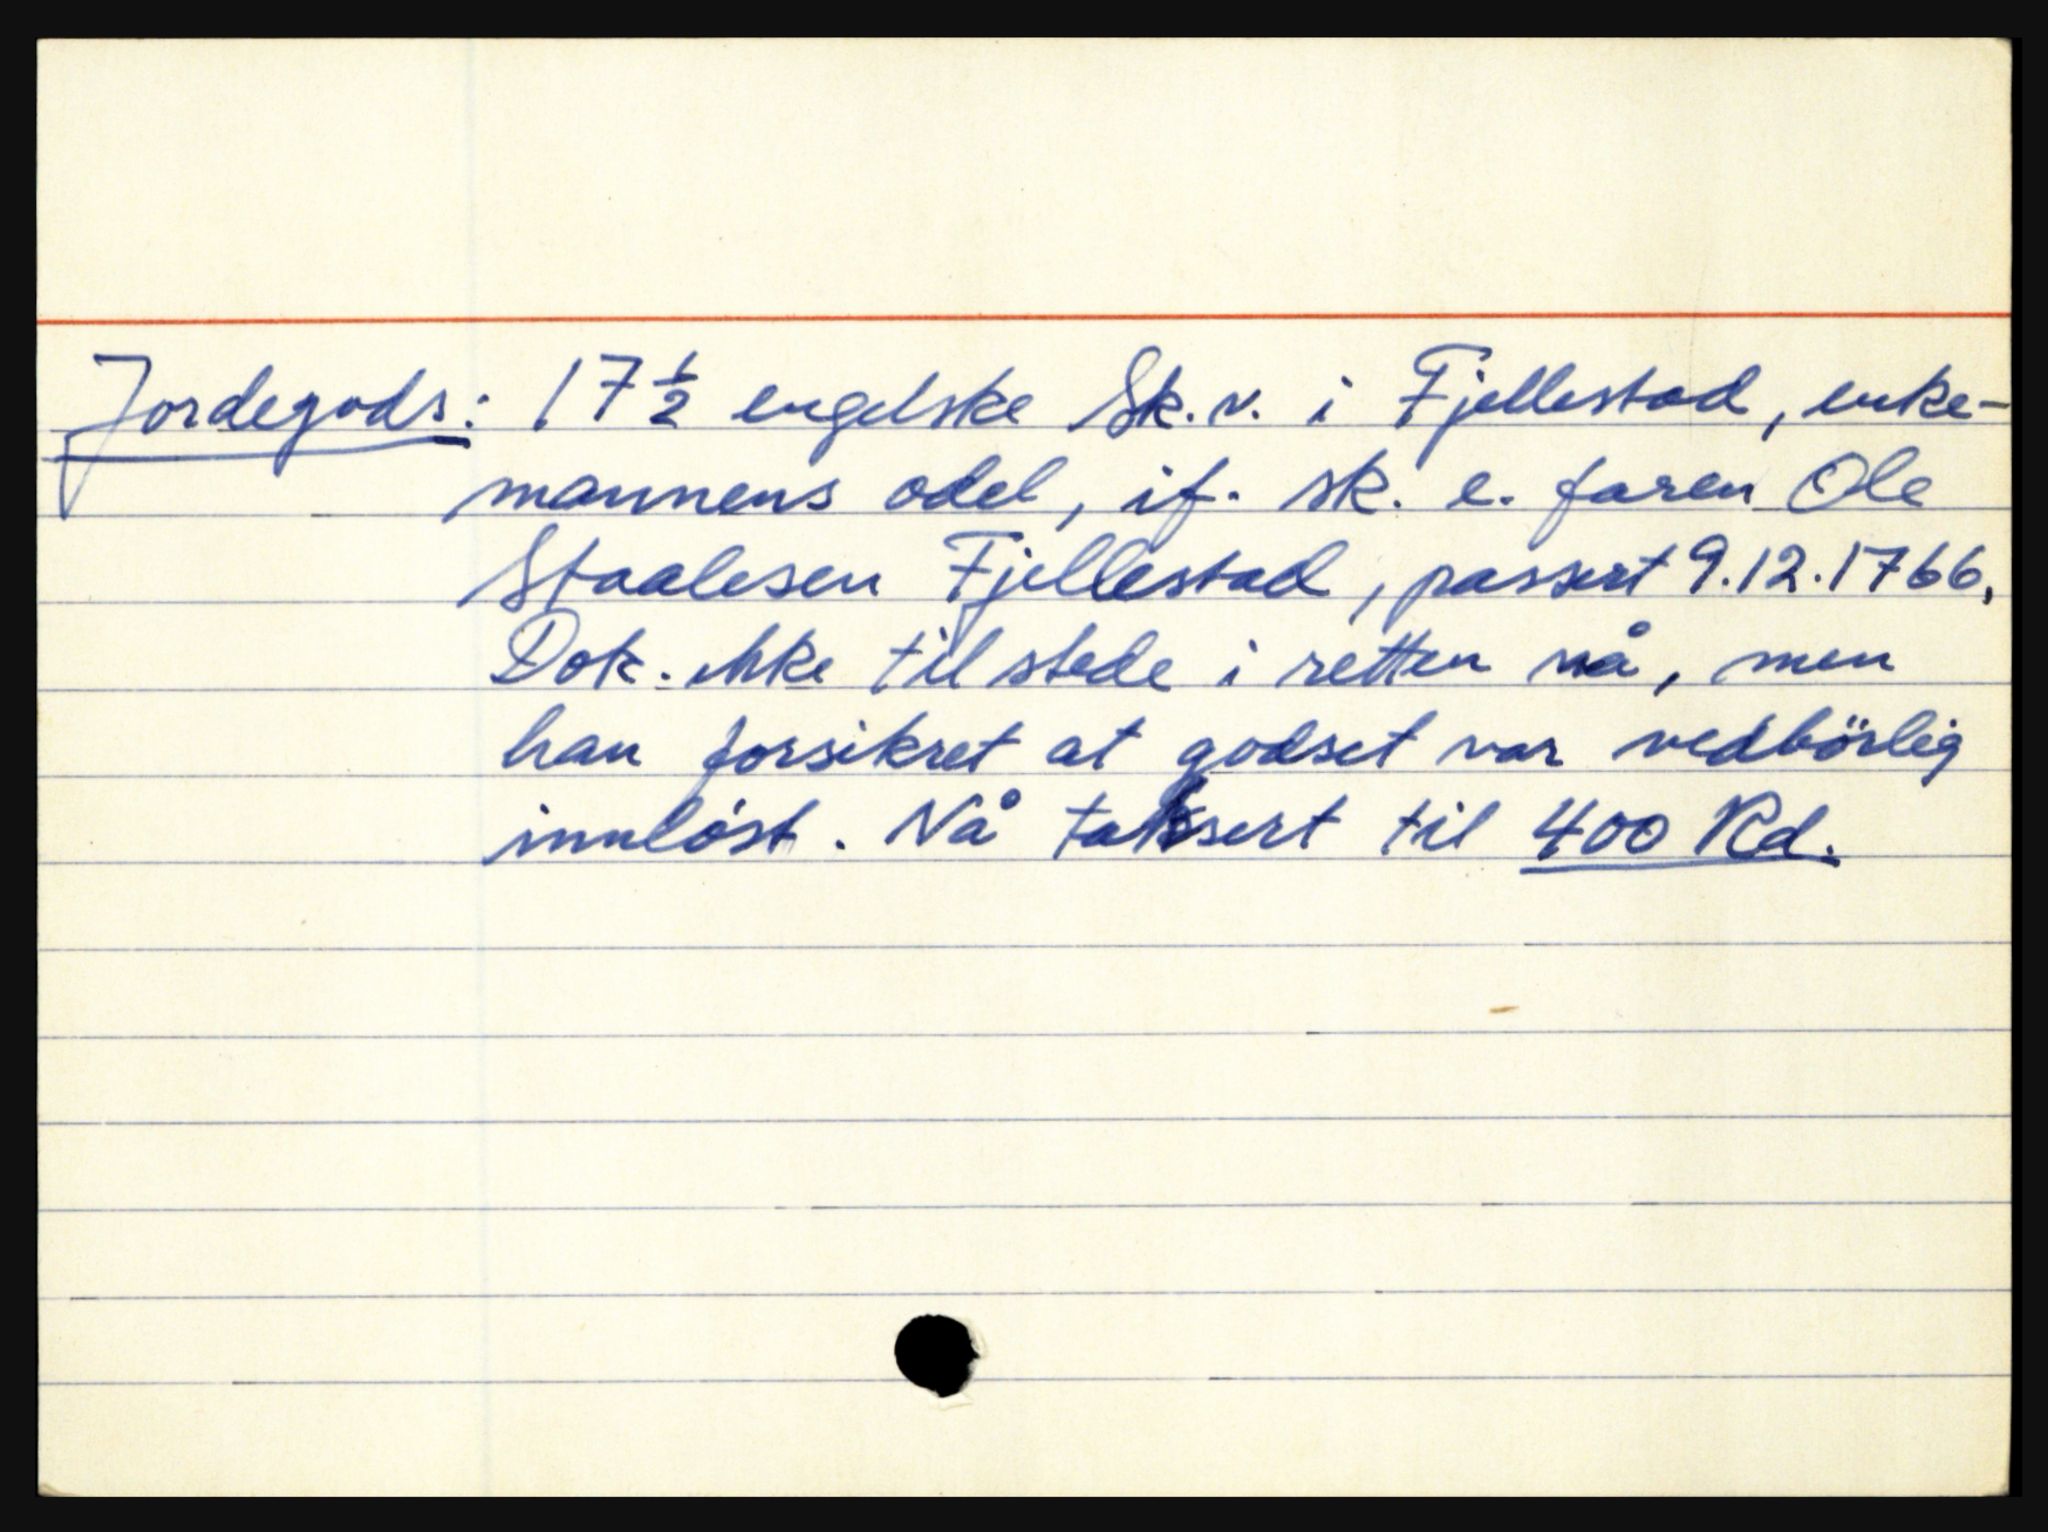 Jordegods: 17 1/2 engelske Sk.v. i Fjellestad, enke-
mannens odel, if. sk. e. faren Ole
Staalesen Fjellestad, passert 9.12.1766,
Dok. ikke til stede i retten nå, men
han forsikret at godset var vedbörlig
innlöst. Nå taksert til 400 Rd.